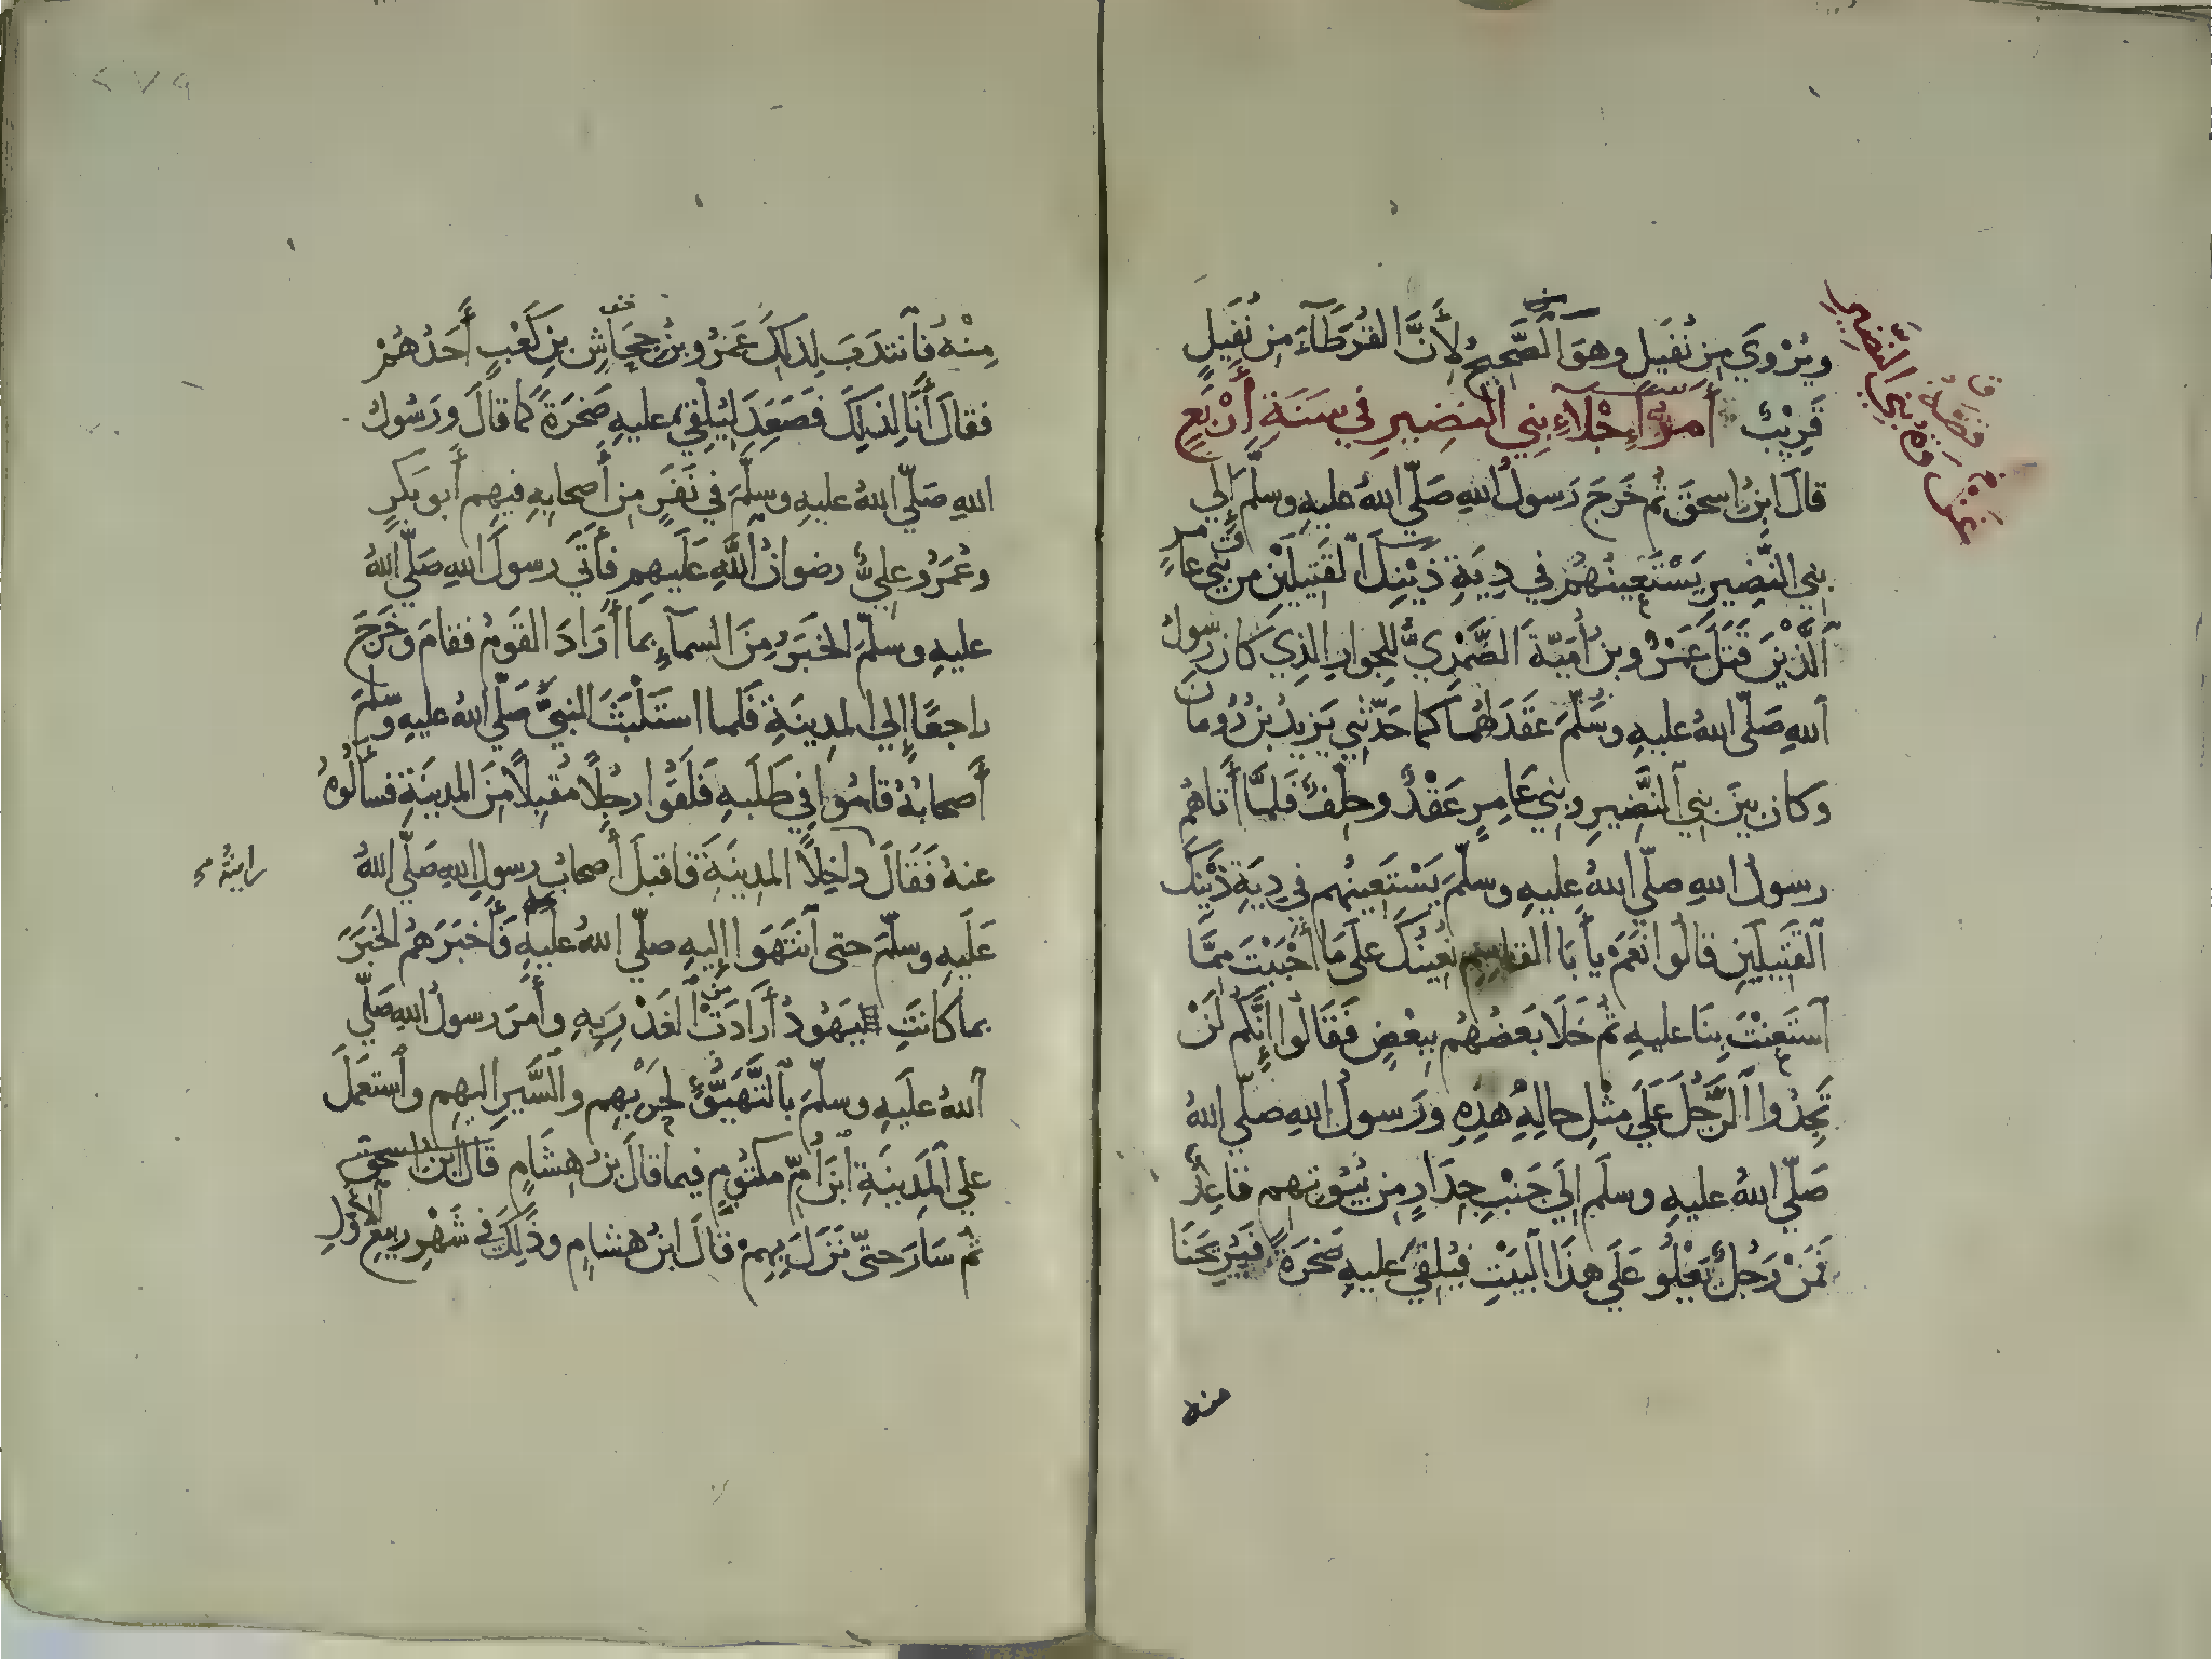 ويُرْوَي مِن نُفَيل وهوَ الصَّحِيحُ لأَنَّ القُرَطَآءَ مِن نُفَيلٍ
قَرِيْبٌ أَمرُ إِجْلَآءِ بني النضِيرِ في سَنَةِ أَرْبَعٍ
غزوة بني النضير
قالَ ابنُ إسحقَ ثُم خَرَجَ رَسولُ اللهِ صَلّي اللهُ عليهِ وسلَّمَ إلي
بني النَّضِيرِ يَسْتَعِينُهُم في دِيَةِ ذَيْنِكَ القَتِيلَيْنِ من بَنِي عامرٍ
اَلَّذَيْنِ قَتَلَ عَمْرُو بنُ أُمَيّةَ الضَّمْرِيُّ للجِوارِ الذِي كانَ رسولُ
اَللهِ صَلّى اللهُ عليهِ وسَلَّمَ عَقَدَ لهُما كما حَدّثنِي يَزِيدُ بنُ رُومانَ
وَكان بينَ بني النَّضِيرِ وبني عَامِرٍ عَقْدٌ وحِلفٌ فَلمَّا أَتاهُم
رسولُ اللهِ صلّي اللهُ عليهِ وسلّمَ يَسْتَعِينُهم في دِيَةِ ذَيْنِكَ
اَلقَتِيلَينِ قالُوا نَعَمْ يأَبَا القاسِمِ نُعِينُكَ عَلَى مَا أَحْبَبْتَ مِمَّا
اَستَعَنْتَ بِنَا عليهِ ثُم خَلَا بَعضُهُم بِبعْضٍ فَقَالُوا إِنَّكُم لَنْ
تَجِدُوا الرَّجُلَ عَلَي مِثْلِ حالِهِ هذِهِ ورَسولُ اللهِ صلّي اللهُ
صَلّي اللهُ عليهِ وسلَم إلَي جَنْبِ جِدَارٍ مِن بُيُوتِهم قاعِدٌ
فَمَنْ رَجُلٌ يَعْلُو عَلَي هذَا البَيْتِ فيُلقِيَ عَليهِ صَخرَةً فيُرِيحَنَا
منه
مِنْهُ فاَنتدَبَ لِذلِكَ عَمْرُو بنُ جِحَاشِ بنِ كَعْبٍ أَحَدُهُمْ
فقالَ أَنَا لِذلِكَ فَصَعِدَ لِيُلْقِيَ عليهِ صَخرَةً كما قالَ ورَسُولُ
اللهِ صَلّي اللهُ عليهِ وسلَّمَ في نَفَرٍ مِن أَصحابِهِ فيهِم أَبو بَكرٍ
وعُمَرُ وعلِيٌّ رضوانُ اللَّهِ عَلَيهِم فأَتَي رسولَ اللهِ صَلّي اللهُ
عليهِ وسلّمَ الخَبَرُ مِنَ السمآءِ بِمَا أَرَادَ القَومُ فقامَ وخَرَجَ
راجعًا إلي المدِينَةِ فَلما استَلْبَثَ النبيَّ صَلّي اللهُ عليهِ وسلّمَ
أَصحابُهُ قامُوا في طَلَبِهِ فَلَقُوا رجُلًا مُقبِلًا مِنَ المدينَةِ فسأَلُوهُ
عنهُ فَقَالَ داخِلًا المدِينَةَ فاقبلَ أَصحابُ رسولِ اللهِ صَلّي اللهُ
رايتُهُ
عَلَيهِ وسلَّمَ حتى اَنتَهَوا إليهِ صلّي اللهُ عليهِ فَأَخبَرَهُم الخَبَرَ
بما كانَتِ اليَهُودُ أَرَادَتْ مِن الغَدْرِ بِهِ وأَمَرَ رسولُ اللهِ صَلّي
اَللهُ علَيهِ وسلّمَ بالتَّهَيُّؤِ لحَرْبِهِم والسَّيرِ إليهم واَستعمَلَ
علي المَدِينَةِ اَبْنَ أُمِّ مكتُومٍ فيما قالَ بنُ هِشَامٍ قالَ ابنُ اسحق
ثم سَارَ حتّى نَزَلَ بِهِمْ قَالَ ابنُ هشامٍ وذَلِكَ في شَهْرِ ربيعِ الأَوّلِ